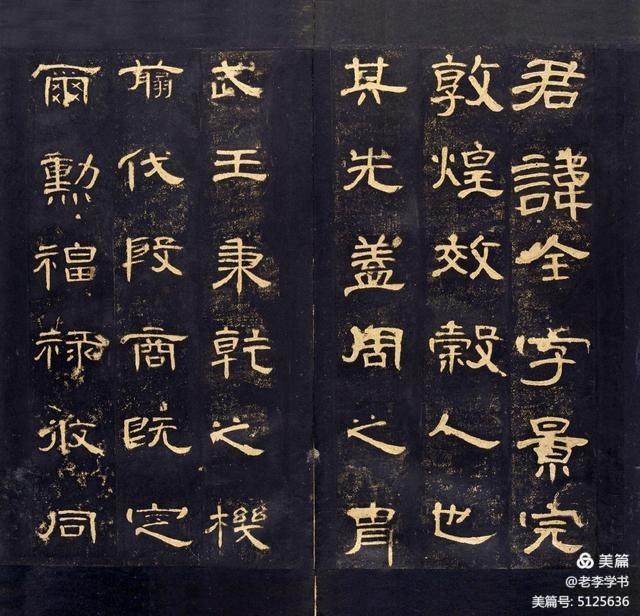 君諱全字景完
敦煌效穀人也
其先蓋周之胄
武王秉乾之機
翦伐殷商既定
爾勳福祿攸同
美篇
@老李学书
美篇号: 5125636